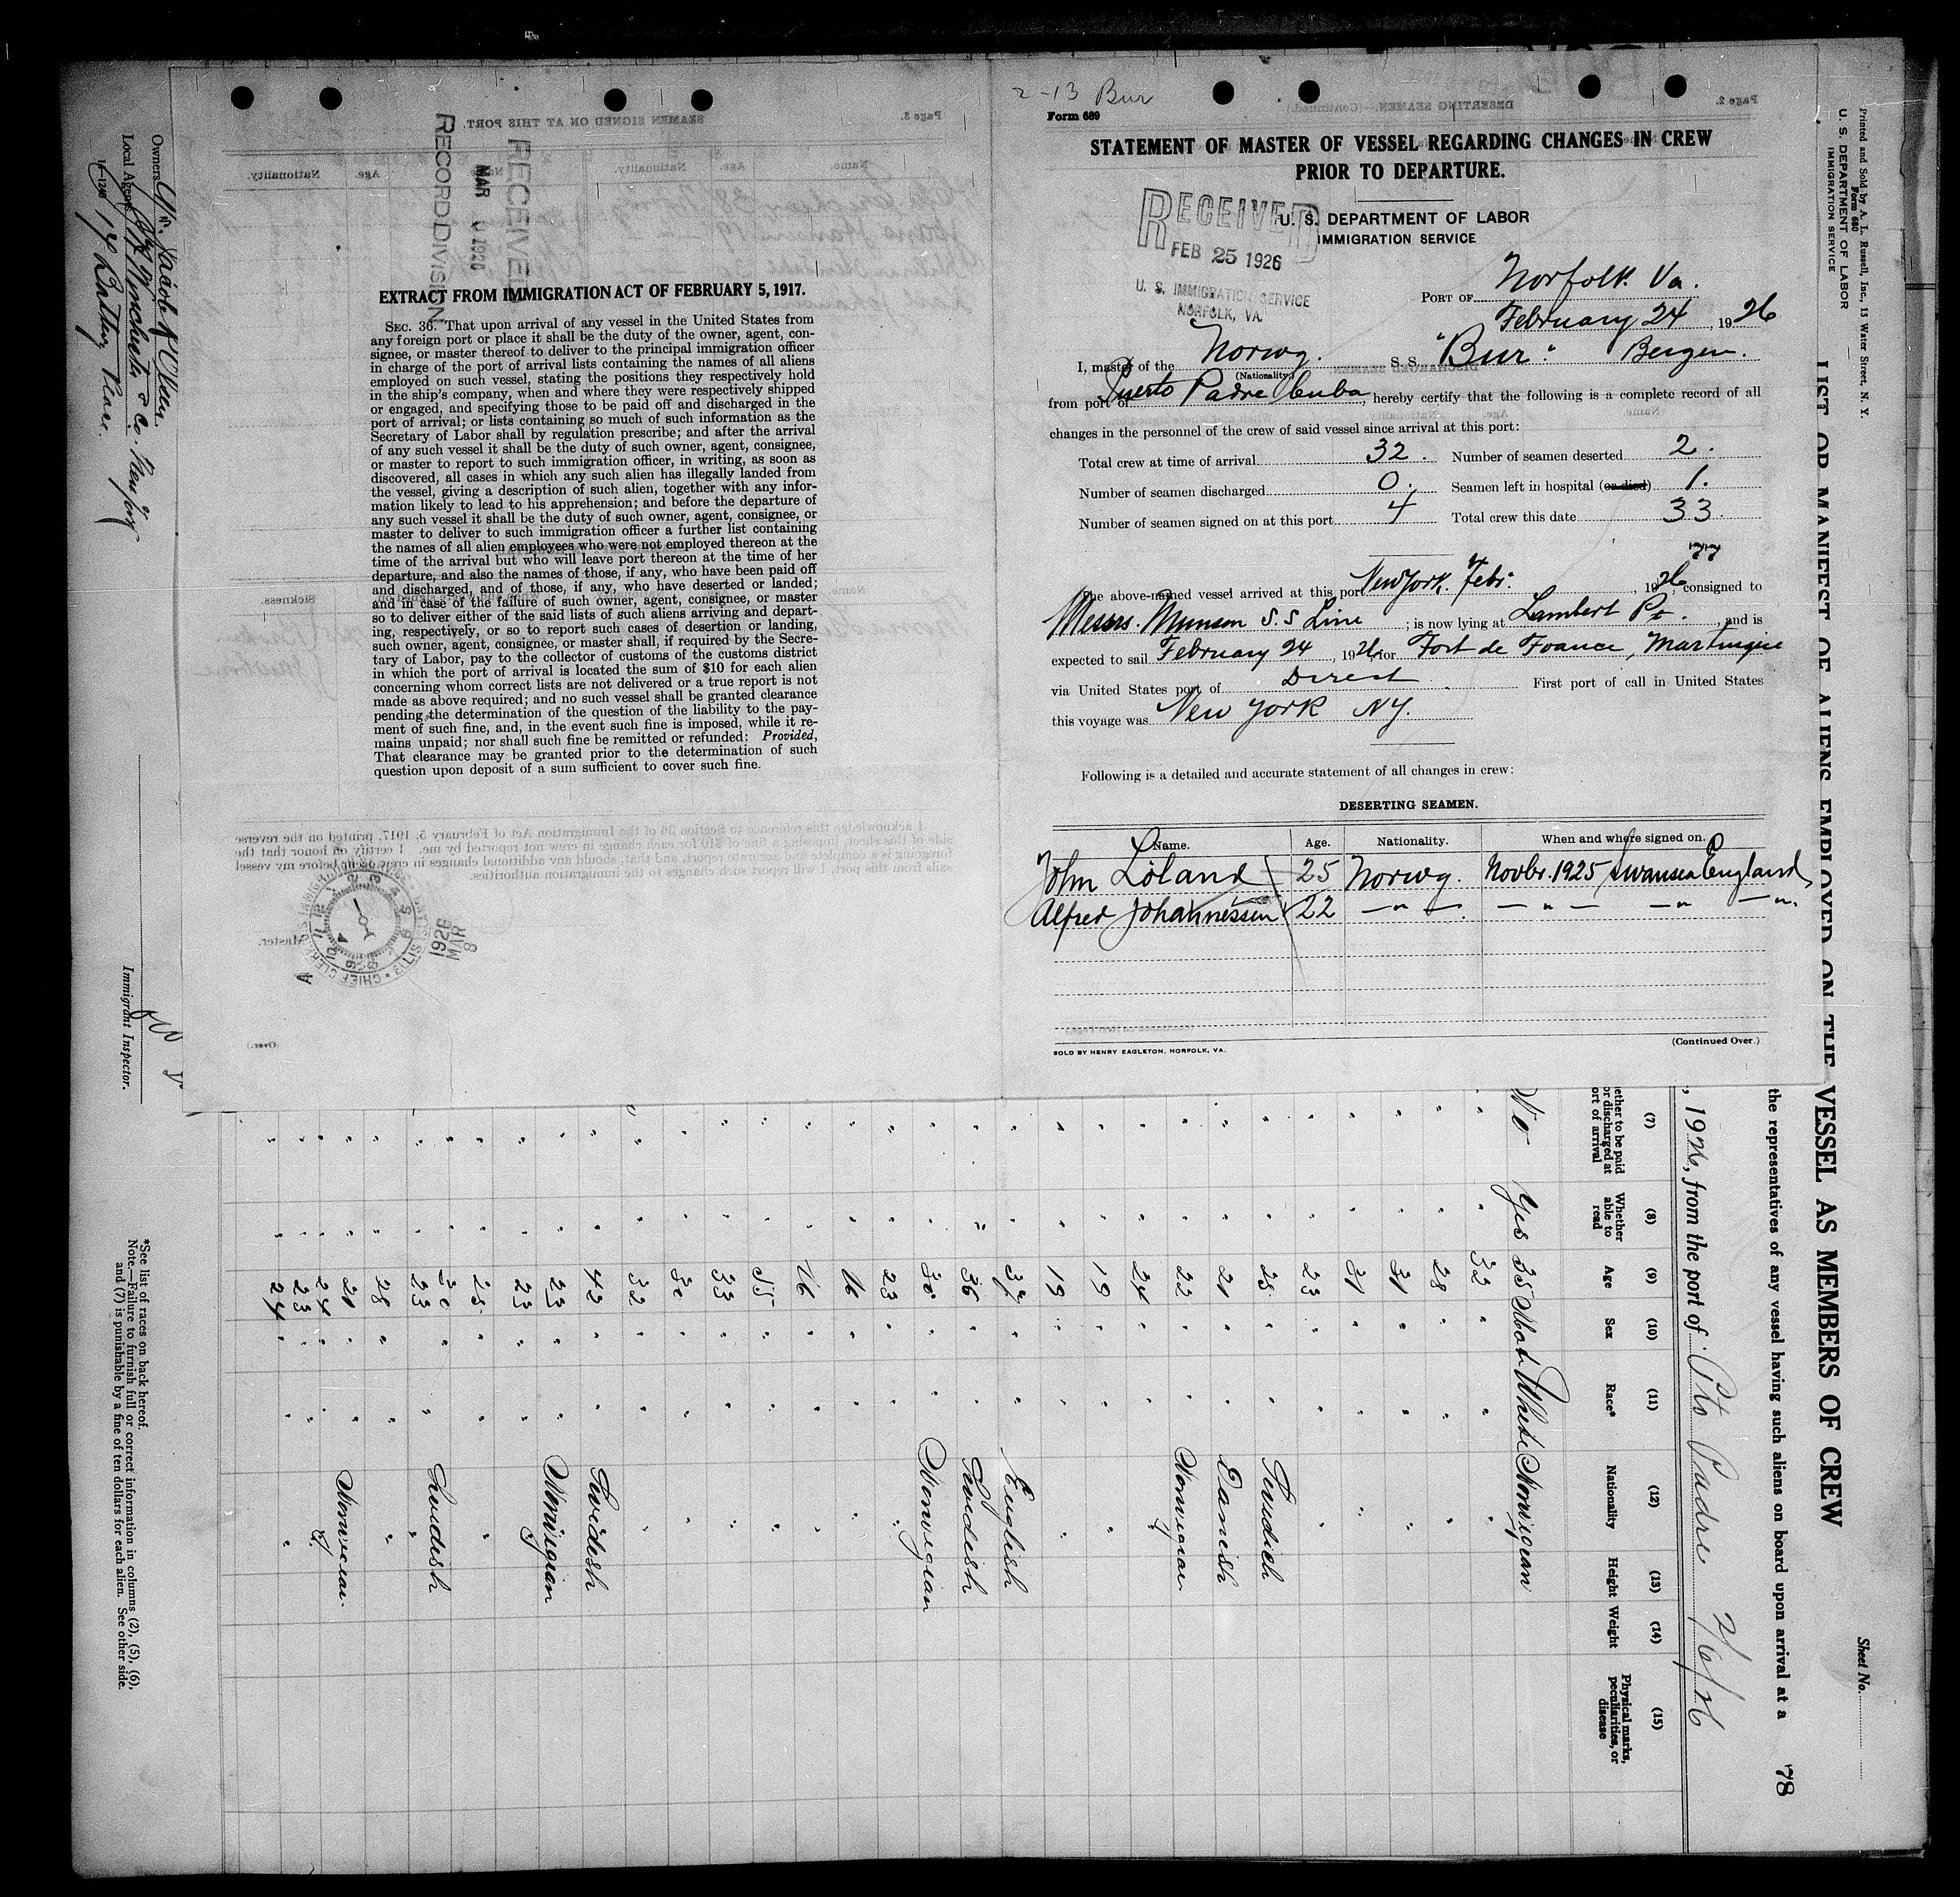 2-13 Bur
Form 689
STATEMENT OF MASTER OF VESSEL REGARDING CHANGES IN CREW
PRIOR TO DEPARTURE.
U. S. DEPARTMENT OF LABOR
IMMIGRATION SERVICE
RECEIVED
FEB 25 1926
U. S. IMMIGRATION SERVICE
NORFOLK, VA.
PORT OF Norfolk Va.
February 24, 1926
I, master of the Norwg. S. S. "Bur" Bergen.
(Nationality)
from port of Puerto Padre Cuba, hereby certify that the following is a complete record of all
changes in the personnel of the crew of said vessel since arrival at this port:
Total crew at time of arrival 32. Number of seamen deserted 2.
Number of seamen discharged 0. Seamen left in hospital (or died) 1.
Number of seamen signed on at this port 4 Total crew this date 33
The above-named vessel arrived at this port New York. Febr. 1926, consigned to
Messrs. Munson S.S Line; is now lying at Lambert Pt., and is
expected to sail February 24, 1926, for Fort de France, Martinique
via United States port of Direct First port of call in United States
this voyage was New York NY.
Following is a detailed and accurate statement of all changes in crew:
DESERTING SEAMEN.
Name. Age. Nationality. When and where signed on.
John Löland 25 Norwg. Novbr. 1925 Swansea England
Alfred Johannessen 22 —"— —"— —"— —"—
SOLD BY HENRY EAGLETON, NORFOLK, VA.
(Continued Over.)
RECEIVED
MAR 1926
RECORD DIVISION
EXTRACT FROM IMMIGRATION ACT OF FEBRUARY 5, 1917.
SEC. 36. That upon arrival of any vessel in the United States from
any foreign port or place it shall be the duty of the owner, agent, con-
signee, or master thereof to deliver to the principal immigration officer
in charge of the port of arrival lists containing the names of all aliens
employed on such vessel, stating the positions they respectively hold
in the ship's company, when and where they were respectively shipped
or engaged, and specifying those to be paid off and discharged in the
port of arrival; or lists containing so much of such information as the
Secretary of Labor shall by regulation prescribe; and after the arrival
of any such vessel it shall be the duty of such owner, agent, consignee,
or master to report to such immigration officer, in writing, as soon as
discovered, all cases in which any such alien has illegally landed from
the vessel, giving a description of such alien, together with any infor-
mation likely to lead to his apprehension; and before the departure of
any such vessel it shall be the duty of such owner, agent, consignee, or
master to deliver to such immigration officer a further list containing
the names of all alien employees who were not employed thereon at the
time of the arrival but who will leave port thereon at the time of her
departure, and also the names of those, if any, who have been paid off
and discharged, and of those, if any, who have deserted or landed;
and in case of the failure of such owner, agent, consignee, or master
so to deliver either of the said lists of such aliens arriving and depart-
ing, respectively, or so to report such cases of desertion or landing,
such owner, agent, consignee, or master shall, if required by the Secre-
tary of Labor, pay to the collector of customs of the customs district
in which the port of arrival is located the sum of $10 for each alien
concerning whom correct lists are not delivered or a true report is not
made as above required; and no such vessel shall be granted clearance
pending the determination of the question of the liability to the pay-
ment of such fine, and, in the event such fine is imposed, while it re-
mains unpaid; nor shall such fine be remitted or refunded: Provided,
That clearance may be granted prior to the determination of such
question upon deposit of a sum sufficient to cover such fine.
1926 MAR 8
Printed and Sold by A. L. Russell, Inc., 13 Water Street, N. Y.
Form 680
U. S. DEPARTMENT OF LABOR
IMMIGRATION SERVICE
Sheet No.
LIST OR MANIFEST OF ALIENS EMPLOYED ON THE VESSEL AS MEMBERS OF CREW
the representatives of any vessel having such aliens on board upon arrival at a
78
, 1926, from the port of Pto Padre 2/6/26
(7) (8) (9) (10) (11) (12) (13) (14) (15)
ether to be paid or discharged at ort of arrival
Whether able to read
Age
Sex
Race*
Nationality
Height
Weight
Physical marks, peculiarities, or disease
No Yes 35 Male White Norwigian
" " 32 " " "
" " 28 " " "
" " 31 " " "
" " 31 " " "
" " 23 " " "
" " 25 " " Swedish
" " 21 " " Danish
" " 22 " " Norwegian
" " 24 " " "
" " 19 " " "
" " 19 " " "
" " 37 " " English
" " 36 " " Swedish
" " 30 " " Norwegian
" " 23 " " "
" " 16 " " "
" " 16 " " "
" " 55 " " "
" " 33 " " "
" " 30 " " "
" " 32 " " "
" " 42 " " Swidish
" " 23 " " Norwigian
" " 23 " " "
" " 25 " " "
" " 30 " " Swedish
" " 23 " " "
" " 28 " " "
" " 21 " " Norwegian
" " 24 " " "
" " 23 " "
" " 24 " " "
Owners Jacob R Olsen
Local Agents Winchester & Co. New York
17 Battery Place.
Immigrant Inspector.
*See list of races on back hereof.
Note.—Failure to furnish full or correct information in columns (2), (5), (6),
and (7) is punishable by a fine of ten dollars for each alien. See other side.